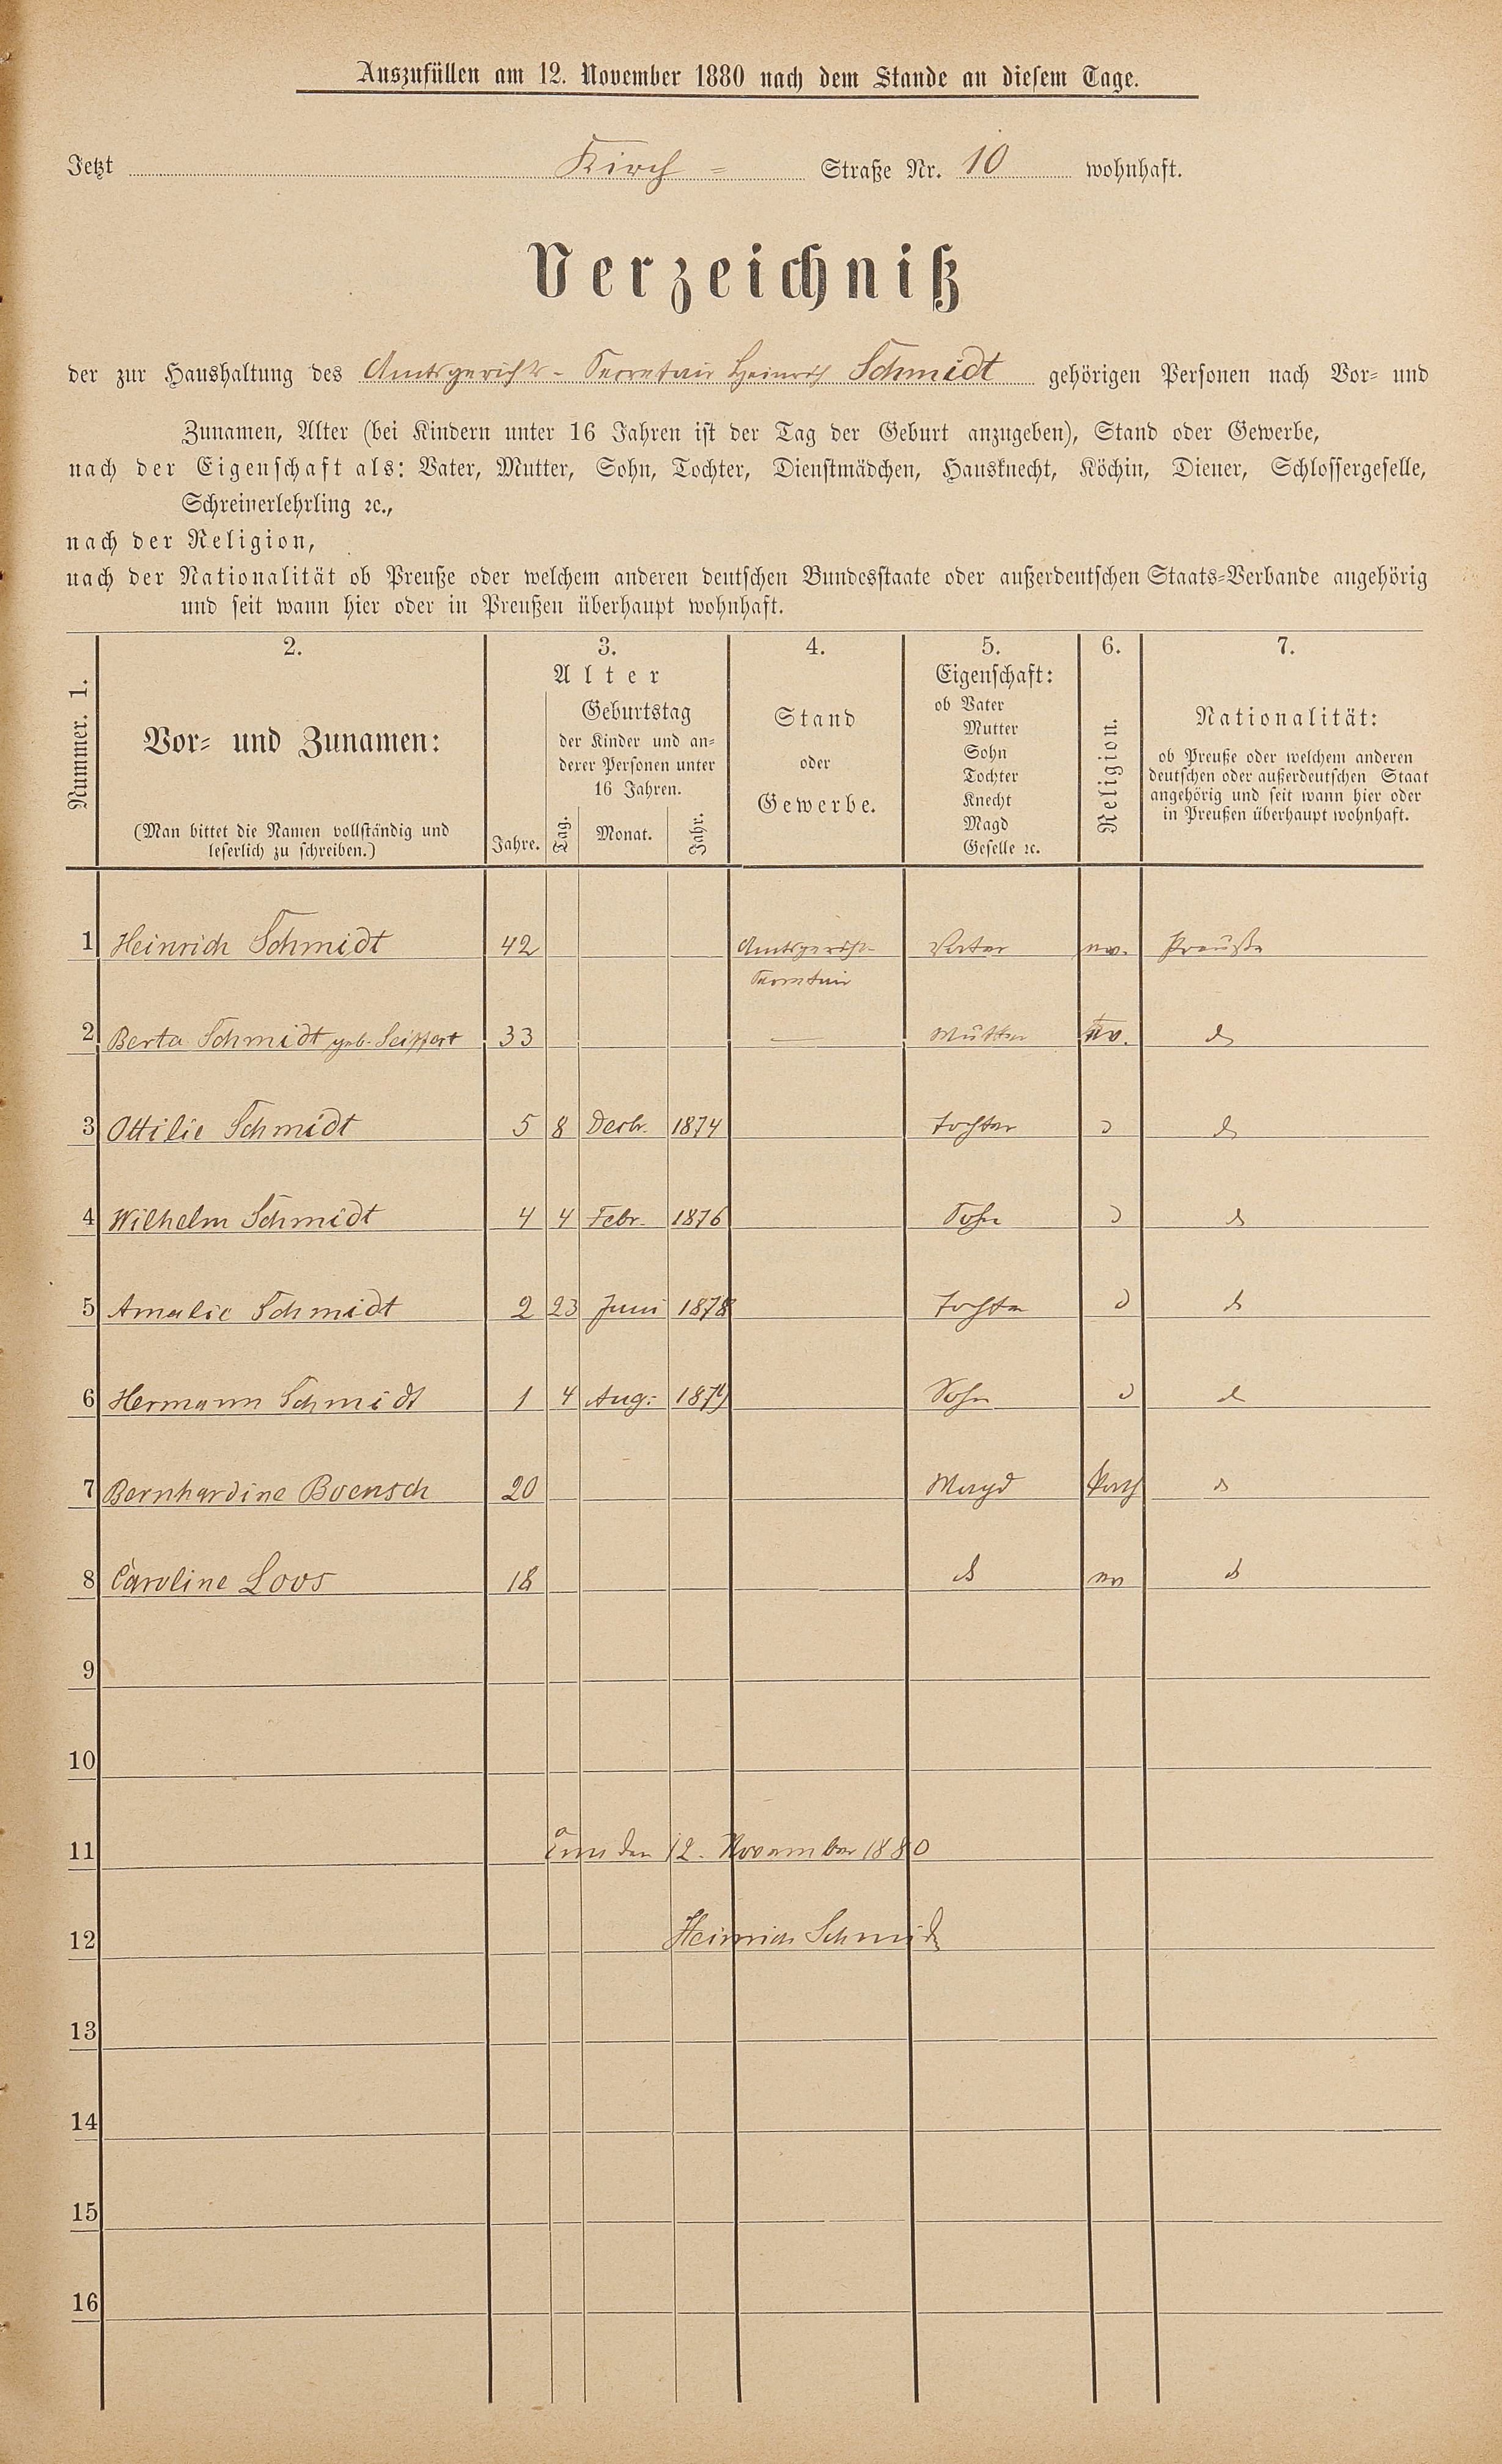 Auszufüllen am 12. November 1880 nach dem Stande an diesem Tage.
Jetzt Kirch = Straße Nr. 10 wohnhaft.
Verzeichniß
der zur Haushaltung des Amtsgerichts-Secretair Heinrich Schmidt gehörigen Personen nach Vor- und
Zunamen, Alter (bei Kindern unter 16 Jahren ist der Tag der Geburt anzugeben), Stand oder Gewerbe,
nach der Eigenschaft als: Vater, Mutter, Sohn, Tochter, Dienstmädchen, Hausknecht, Köchin, Diener, Schlossergeselle,
Schreinerlehrling ꝛc.,
nach der Religion,
nach der Nationalität ob Preuße oder welchem anderen deutschen Bundesstaate oder außerdeutschen Staats-Verbande angehörig
und seit wann hier oder in Preußen überhaupt wohnhaft.
Nummer. 1.
2.
Vor- und Zunamen:
(Man bittet die Namen vollständig und
leserlich zu schreiben.)
3.
Alter
Jahre.
Geburtstag
der Kinder und an-
derer Personen unter
16 Jahren.
Tag. Monat. Jahr.
4.
Stand
oder
Gewerbe.
5.
Eigenschaft:
ob Vater
Mutter
Sohn
Tochter
Knecht
Magd
Geselle ꝛc.
6.
Religion.
7.
Nationalität:
ob Preuße oder welchem anderen
deutschen oder außerdeutschen Staat
angehörig und seit wann hier oder
in Preußen überhaupt wohnhaft.
1 Heinrich Schmidt 42 Amtsgerichts- Vater ev. Preuße
Secretair
2 Berta Schmidt geb. Seiffert 33 — Mutter ev. do
3 Ottilie Schmidt 5 8 Decbr. 1874 Tochter do do
4 Wilhelm Schmidt 4 4 Febr. 1876 Sohn do do
5 Amalie Schmidt 2 23 Juni 1878 Tochter do do
6 Hermann Schmidt 1 4 Aug. 1879 Sohn do do
7 Bernhardine Boensch 20 Magd kath do
8 Caroline Loos 18 do ev do
9
10
11 den 12. November 1880
12 Heinrich Schmidt
13
14
15
16